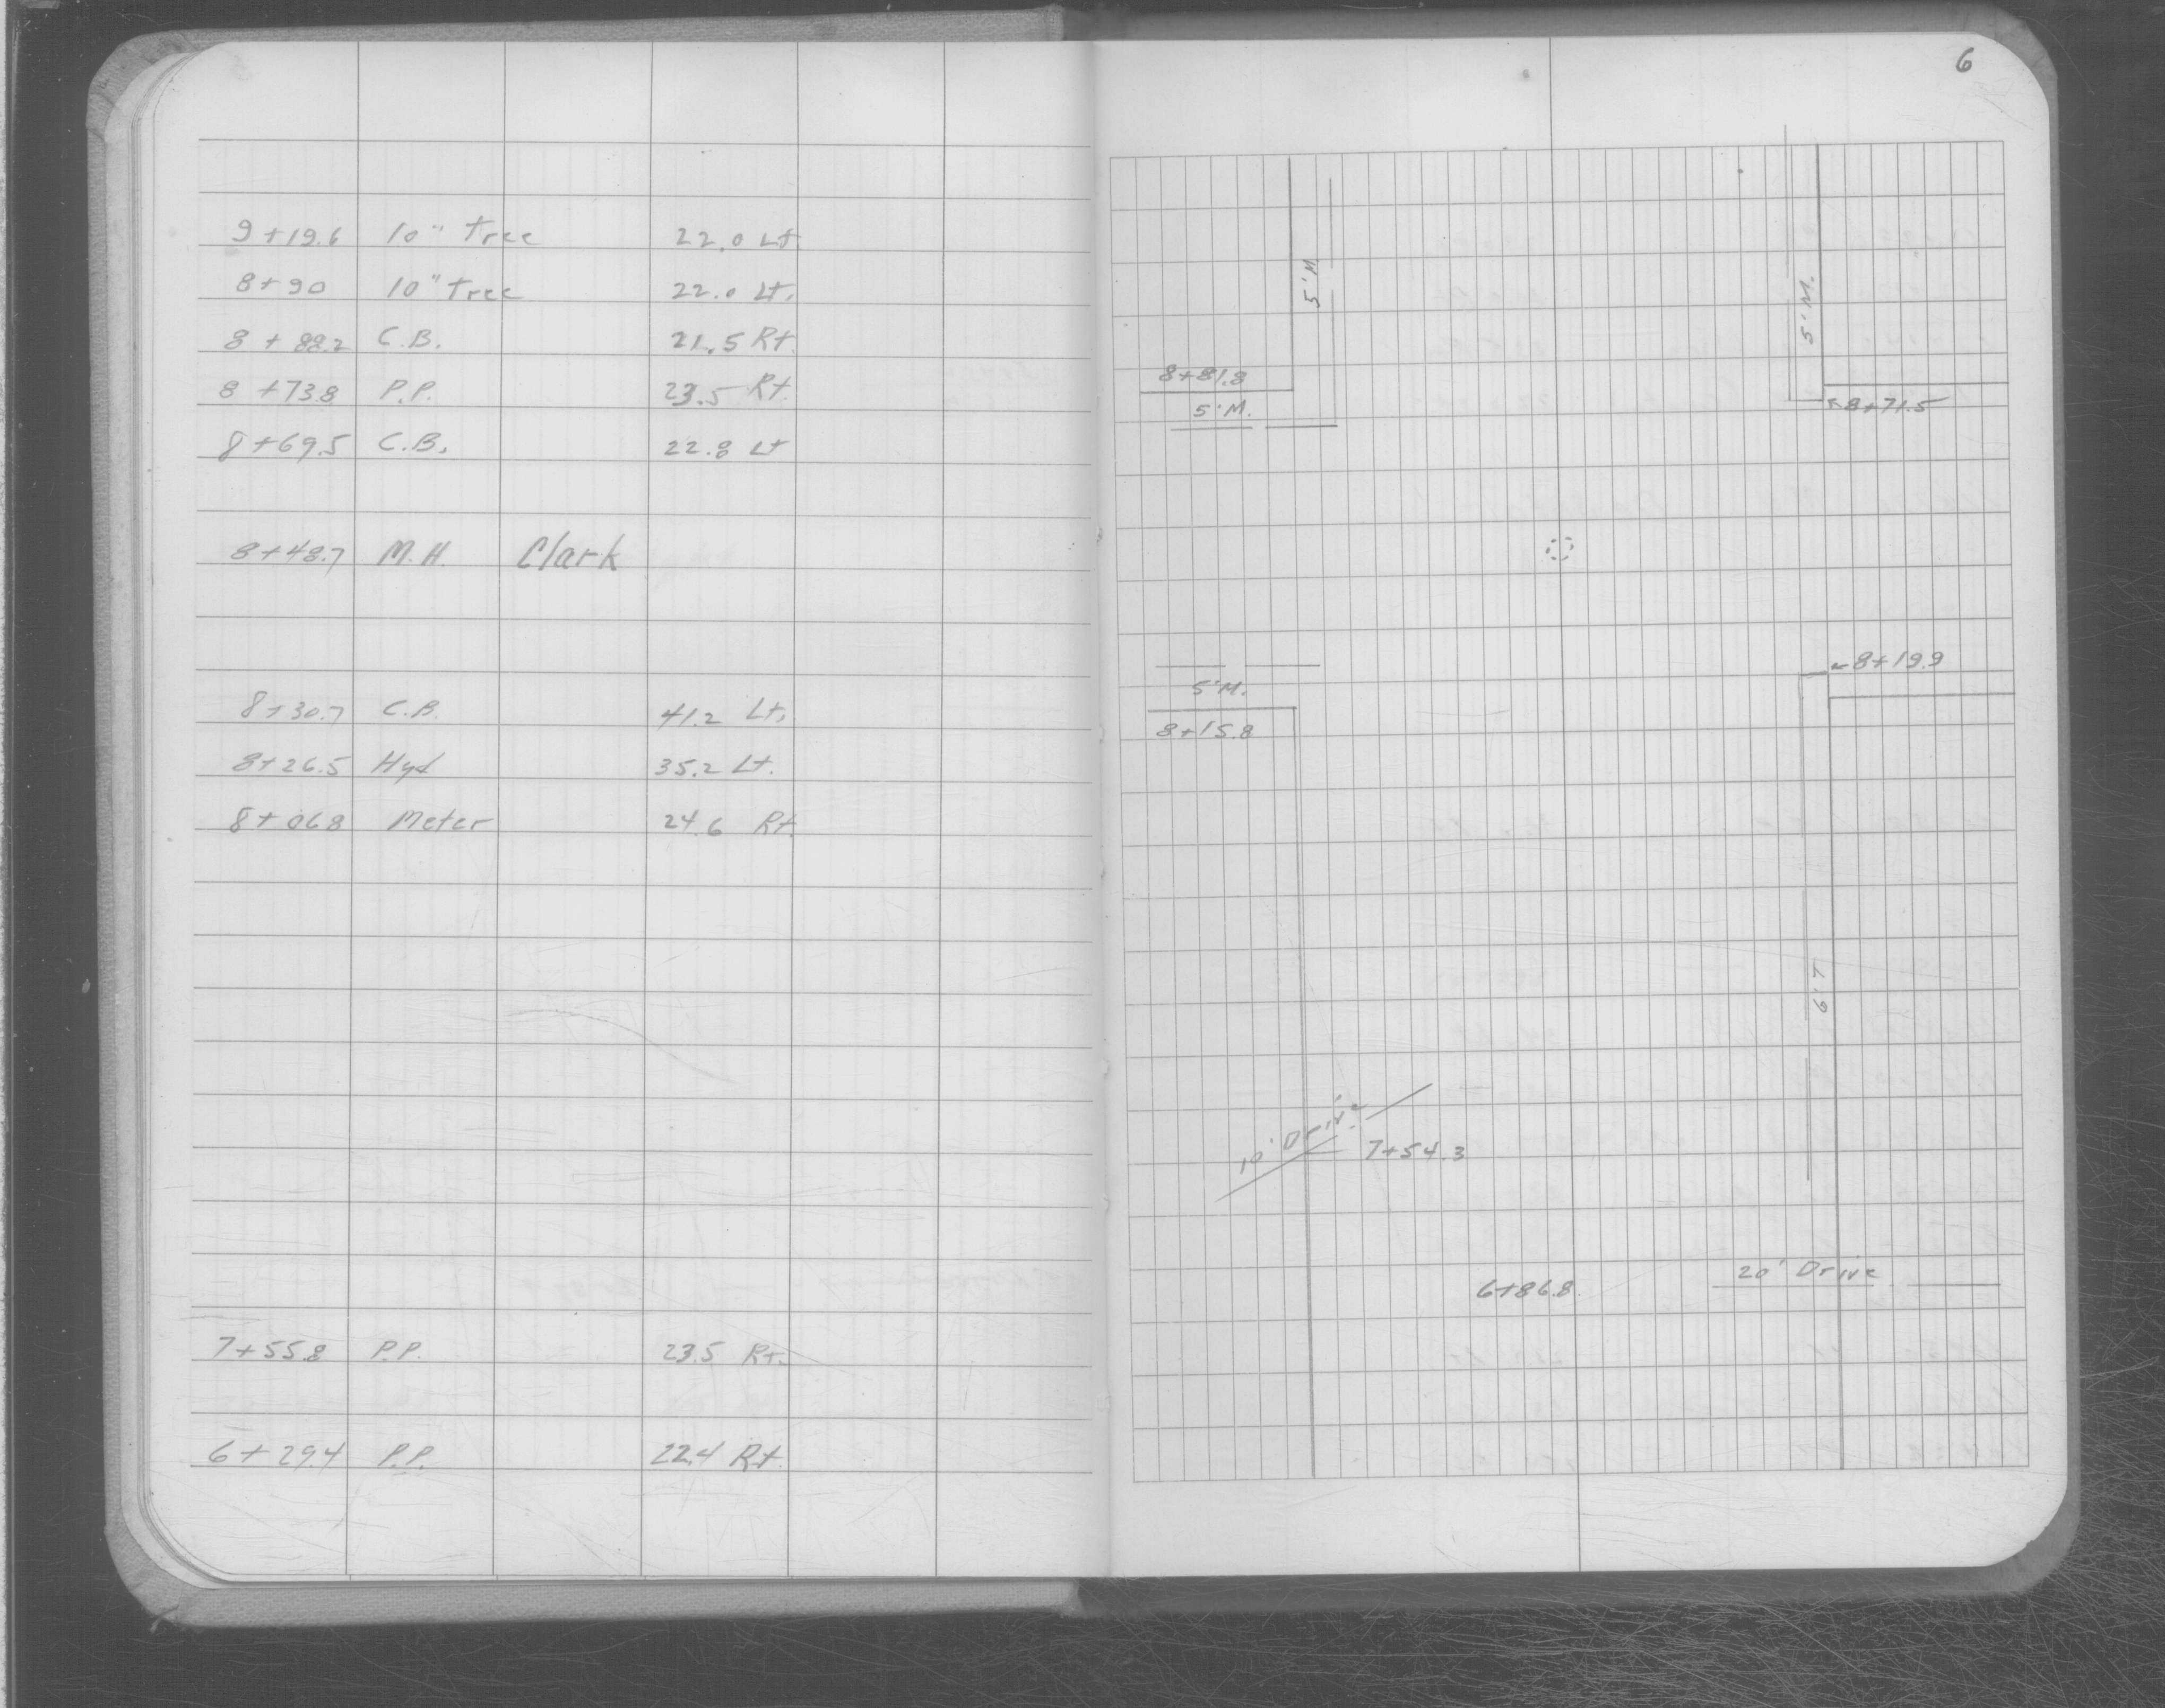 9+19.6 10" Tree 22.0 Lt.
8+90 10" Tree 22.0 Lt.
8+88.2 C.B. 21.5 Rt.
8+73.8 P.P. 23.5 Rt.
8+69.5 C.B. 22.8 Lt
8+48.7 M.H. Clark
8+30.7 C.B. 41.2 Lt.
8+26.5 Hyd 35.2 Lt.
8+06.8 Meter 24.6 Rt.
7+55.8 P.P. 23.5 Rt.
6+29.4 P.P. 22.4 Rt.
6
5'M.
5'M.
8+81.8
5'M.
8+71.5
8+19.9
5'M.
8+15.8
10' Drive
7+54.3
20' Drive
6+86.8